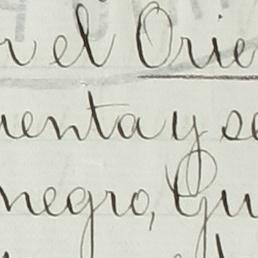 r el Orie
uenta y se
negro, Gu